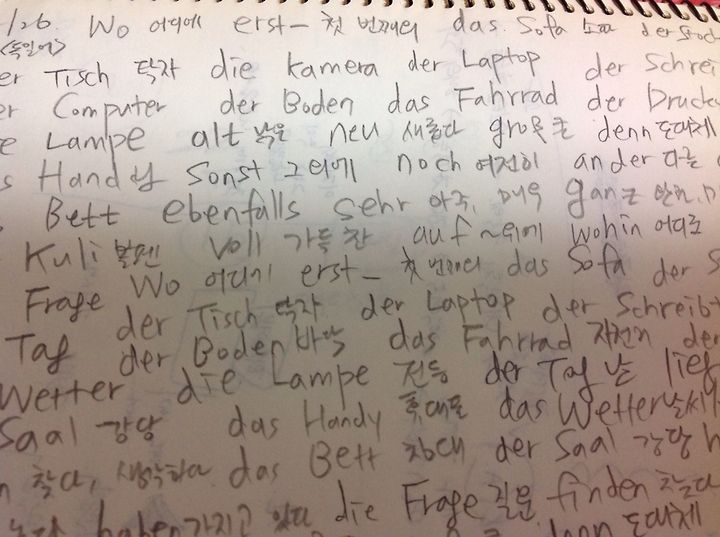 1/26. Wo 어디에 erst- 첫 번째의 das. Sofa 소파 der Stoc
<독일어>
er Tisch 탁자 die Kamera der Laptop der Schrei
er Computer der Boden das Fahrrad der Drucke
e Lampe alt 낡은 neu 새롭다 groß 큰 denn 도대체
s Handy sonst 그외에 noch 여전히 ander 다른
Bett ebenfalls sehr 아주, 매우 ganz
Kuli 볼펜 voll 가득 찬 auf ~위에 wohin 어디로
Frage Wo 어디기 erst- 첫 번째의 das Sofa der S
der Tisch 탁자 der Laptop der Schreib-
Tag der Boden 바닥 das Fahrrad 자전거 der
Wetter die Lampe 전등 der Tag 날 lief
Saal 강당 das Handy 휴대폰 das Wetter 날씨
찾다, 생각하다 das Bett 침대 der Saal 강당
haben 가지고 있다 die Frage 질문 finden 찾다
denn 도대체